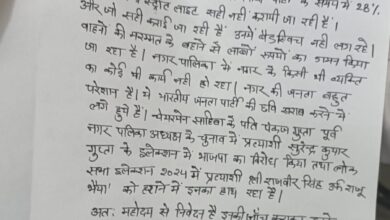 स्ट्रीट लाइट सही नहीं करायी जा रही हैं।
और जो सही कराई जा रही हैं उनमें बैंडस्विच नहीं लग रहे
वाहनों की मरम्मत के बहाने से लाखों रूपयों का गमन किया
जा रहा है। नगर पालिका में नगर के किसी भी व्यक्ति
का कोई भी कार्य नहीं हो रहा। नगर की जनता बहुत
परेशान है। में भारतीय जनता पार्टी की छवि खराब करने में
लगे हुये हैं। चेयरमैन साहिबा के पति पंकज गुप्ता पूर्व
नगर पालिका अध्यक्ष के चुनाव में प्रत्याशी सुरेन्द्र कुमार
गुप्ता के इलेक्शन में भाजपा का विरोध किया तथा लोक
सभा इलेक्शन 2024 में प्रत्याशी श्री राजवीर सिंह उर्फ राजू
भैया' को हराने में इनका हाथ रहा है।
अतः महोदय से निवेदन है इनकी जाँच